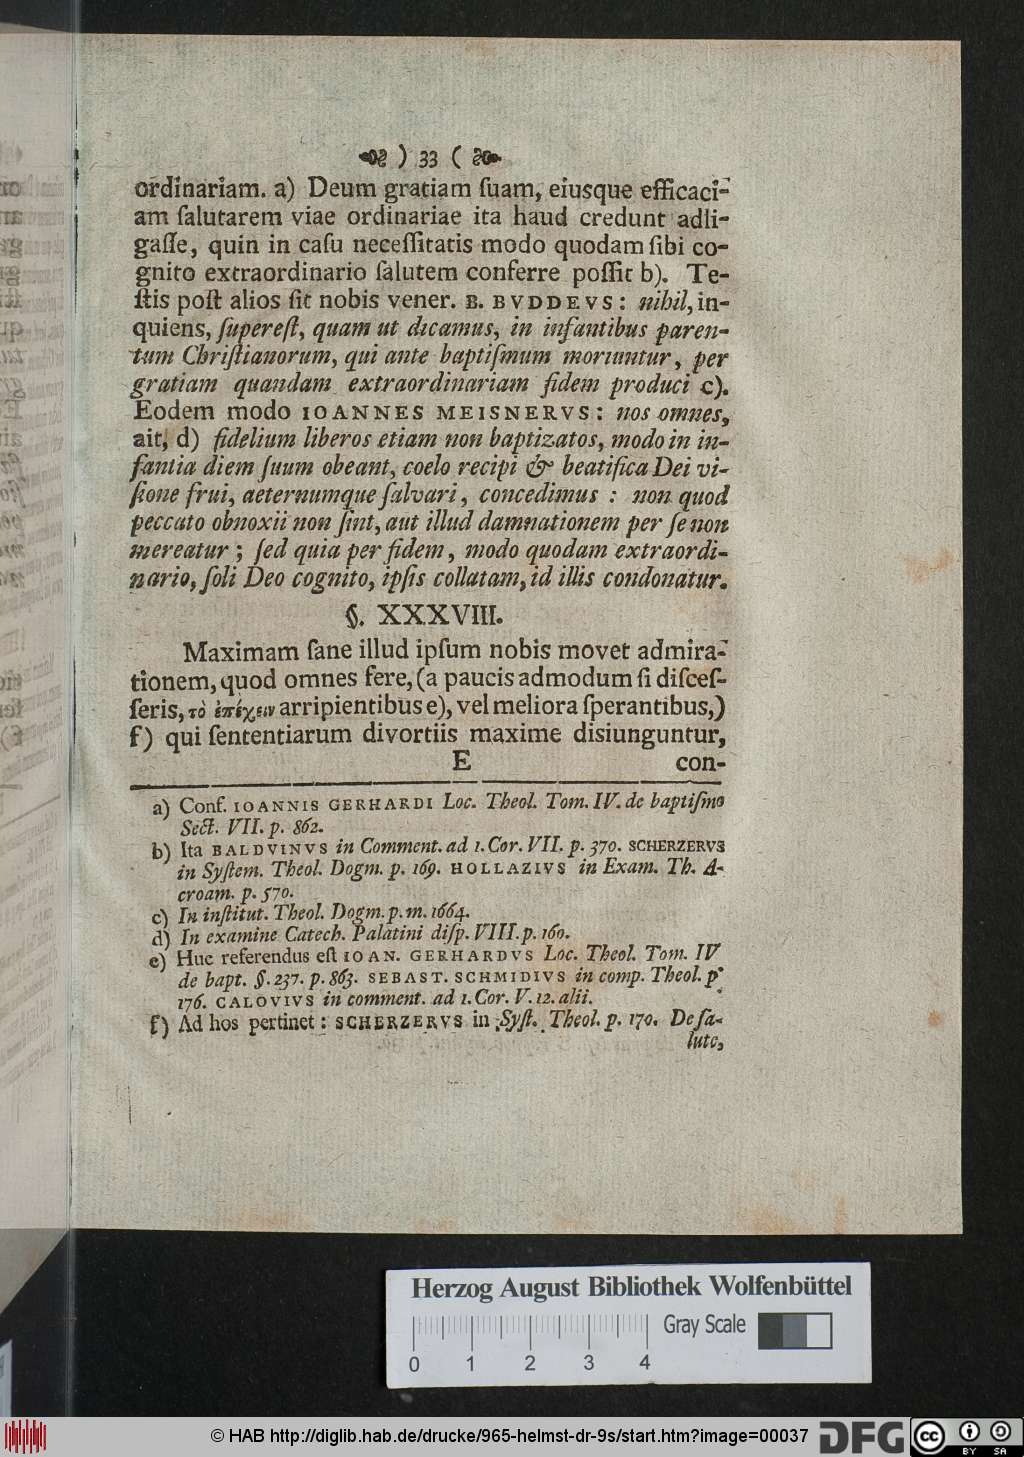 ) 33 (
ordinariam. a) Deum gratiam ſuam, eiusque efficaci-
am ſalutarem viae ordinariae ita haud credunt adli-
gaſſe, quin in caſu neceſſitatis modo quodam ſibi co-
gnito extraordinario ſalutem conferre poſſit b). Te-
ſtis poſt alios ſit nobis vener. B. BVDDEVS: nihil, in-
quiens, ſupereſt, quam ut dicamus, in infantibus paren-
tum Chriſtianorum, qui ante baptiſmum moriuntur, per
gratiam quandam extraordinariam fidem produci c).
Eodem modo IOANNES MEISNERVS: nos omnes,
ait, d) fidelium liberos etiam non baptizatos, modo in in-
fantia diem ſuum obeant, coelo recipi & beatifica Dei vi-
ſione frui, aeternumque ſalvari, concedimus : non quod
peccato obnoxii non ſint, aut illud damnationem per ſe non
mereatur ; ſed quia per fidem, modo quodam extraordi-
nario, ſoli Deo cognito, ipſis collatam, id illis condonatur.
§. XXXVIII.
Maximam ſane illud ipſum nobis movet admira-
tionem, quod omnes fere, (a paucis admodum ſi diſceſ-
ſeris, τὸ ἐπέχειν arripientibus e), vel meliora ſperantibus,)
f) qui ſententiarum divortiis maxime disiunguntur,
E con-
a) Conf. IOANNIS GERHARDI Loc. Theol. Tom. IV. de baptiſmo
Sect. VII. p. 862.
b) Ita BALDVINVS in Comment. ad 1. Cor. VII. p. 370. SCHERZERVS
in Syſtem. Theol. Dogm. p. 169. HOLLAZIVS in Exam. Th. A-
croam. p. 570.
c) In inſtitut. Theol. Dogm. p. m. 1664.
d) In examine Catech. Palatini diſp. VIII. p. 160.
e) Huc referendus eſt IOAN. GERHARDVS Loc. Theol. Tom. IV
de bapt. §. 237. p. 863. SEBAST. SCHMIDIVS in comp. Theol. p.
176. CALOVIVS in comment. ad 1. Cor. V. 12. alii.
f) Ad hos pertinet: SCHERZERVS in Syſt. Theol. p. 170. De ſa-
lute,
Herzog August Bibliothek Wolfenbüttel
Gray Scale
0 1 2 3 4
© HAB http://diglib.hab.de/drucke/965-helmst-dr-9s/start.htm?image=00037
DFG
cc
BY SA